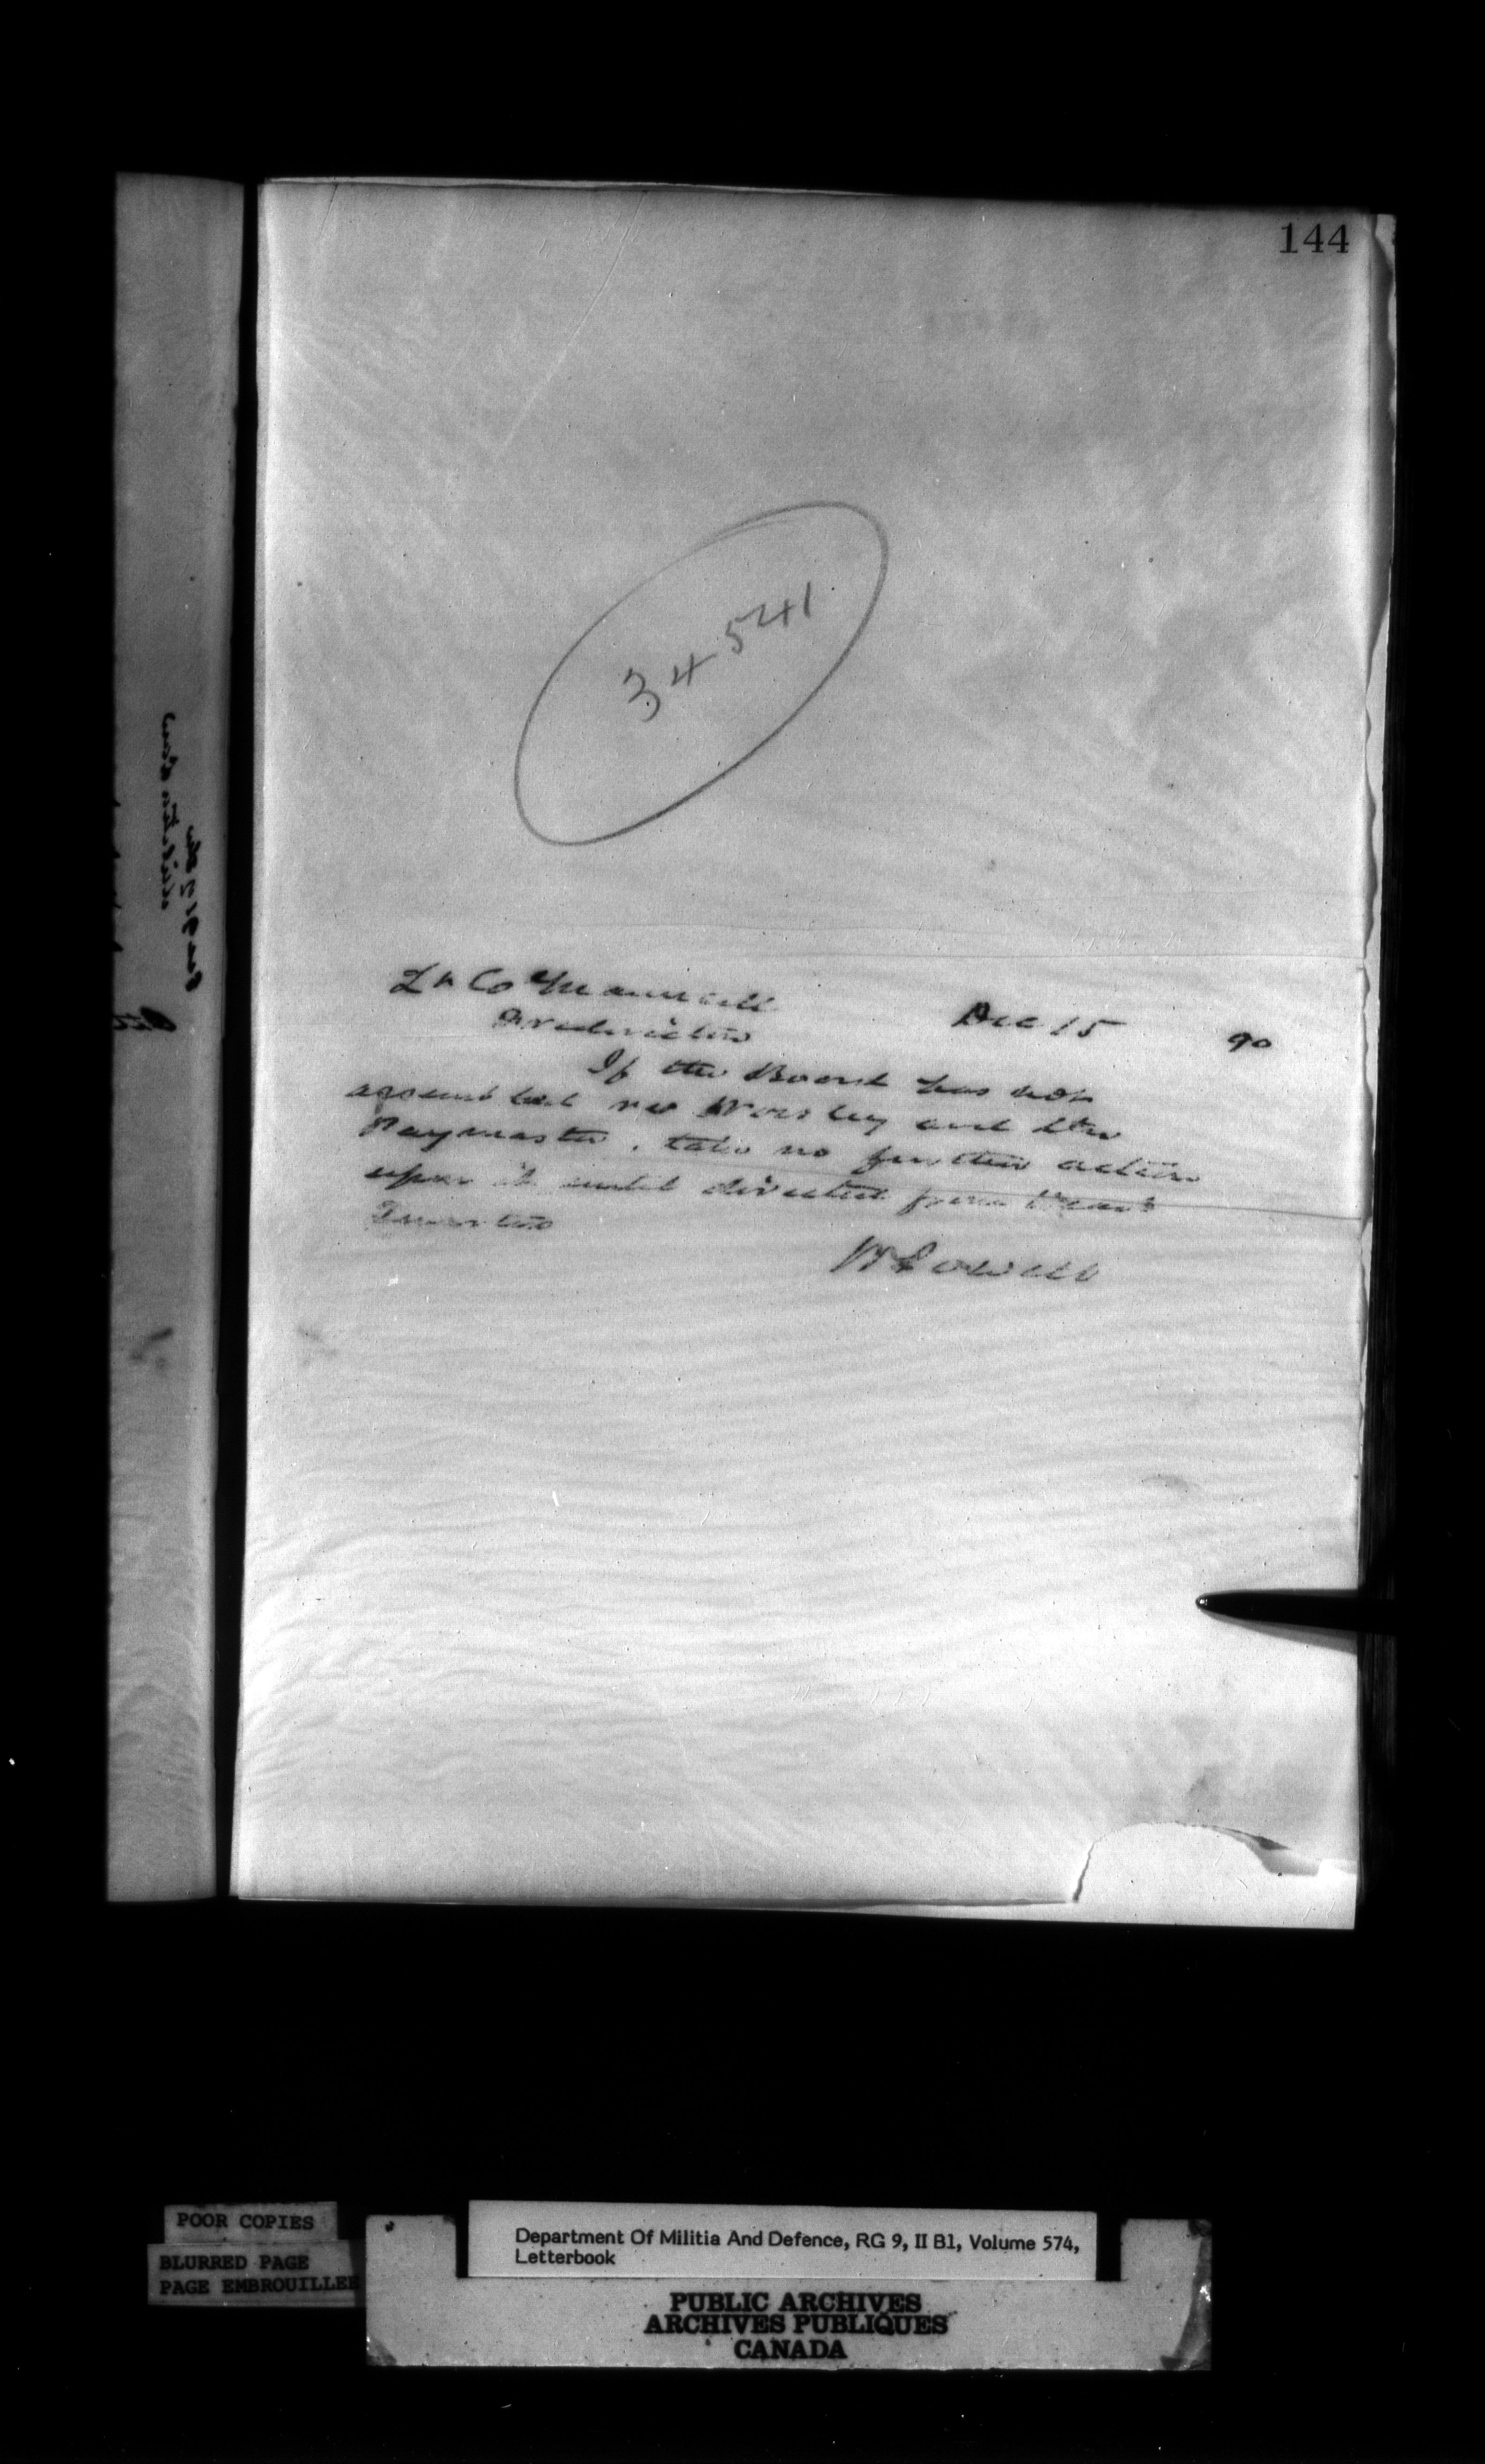 144
34541
Lt Col Maunsell
Dec 15 90
Fredericton
If the Board has not
assembled re Worsley and the
Paymaster, take no further action
upon it until directed from Head
Quarters
W Powell
POOR COPIES
BLURRED PAGE
PAGE EMBROUILLEE
Department Of Militia And Defence, RG 9, II B1, Volume 574,
Letterbook
PUBLIC ARCHIVES
ARCHIVES PUBLIQUES
CANADA